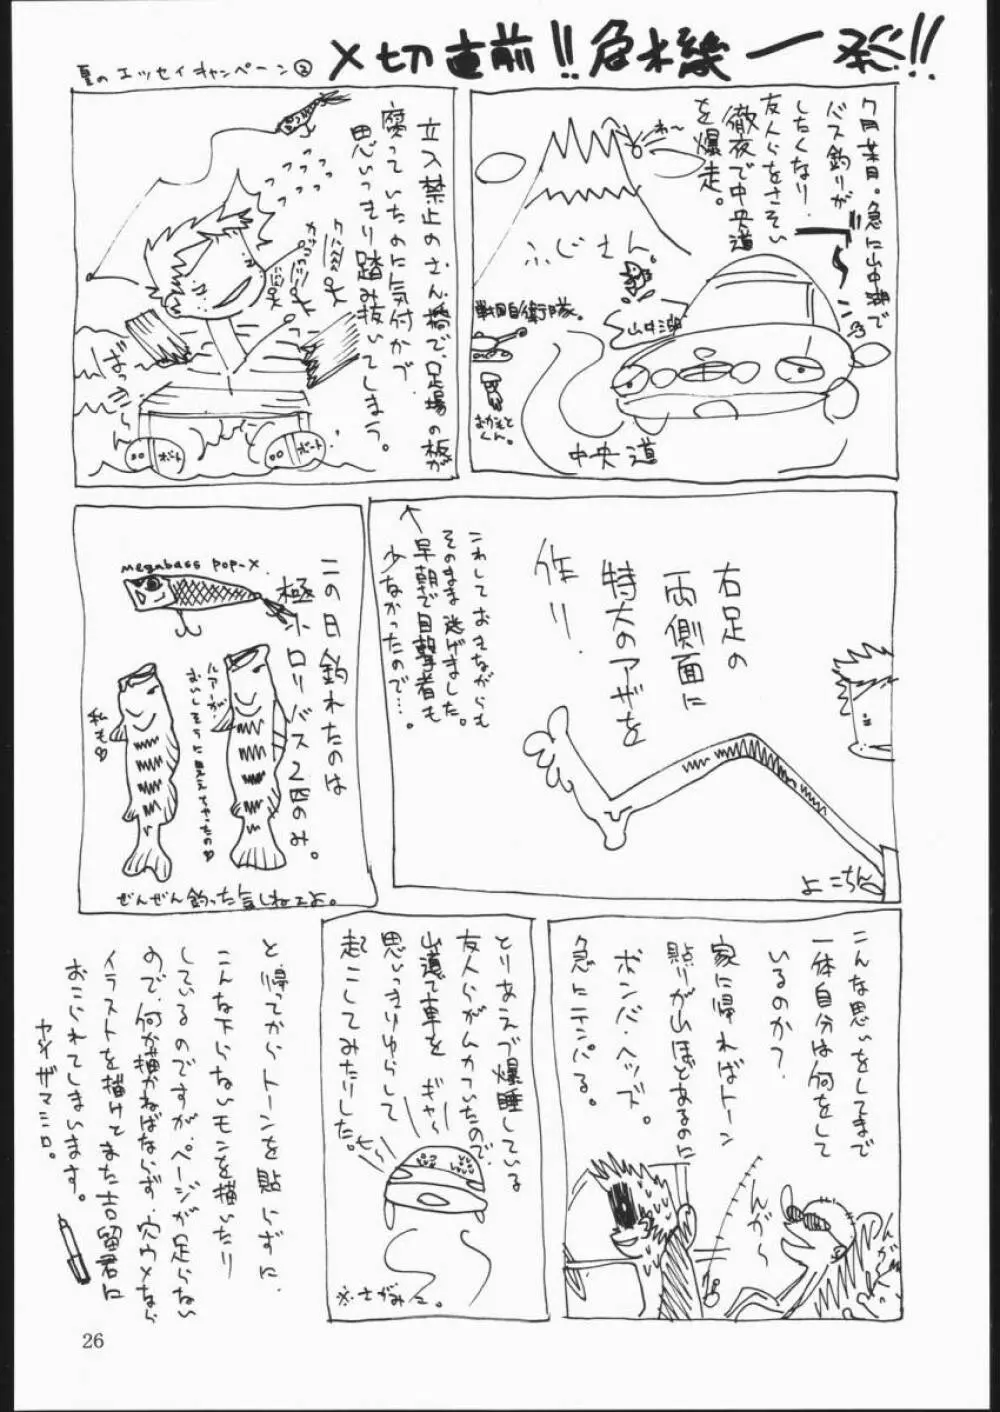 夏のエッセイキャンペーン②
〆切直前!!危機一発!!
7月某日。急に山中湖で
バス釣りが
したくなり、
友人らをさそい
徹夜で中央道
を爆走。
わ〜
ふじさん
山中湖
戦国自衛隊。
おかもとくん。
中央道
立入禁止のさん橋で、足場の板が
腐っていたのに気付かで
思いっきり踏み抜いてしまう。
ボート
ボート
右足の
両側面に
特大のアザを
作り.
こわしておきながらも
そのまま逃げました。
↑早朝で目撃者も
少なかったので…。
よこちん
この日釣れたのは
極小ロリバス2匹のみ。
megabass POP-X.
ルアーが
おいしそうに見えちゃったの♡
私も♡
ぜんぜん釣った気しねェよ。
こんな思いをしてまで
一体自分は何をして
いるのか?
家に帰ればトーン
貼りが山ほどあるのに
ボンバ・ヘッズ。
急にテンパる。
んがー
とりあえづ爆睡している
友人らがムカついたので、
山道で車を
思いっきりゆらして
起こしてみたりした。
ギャー
※さがみこ。
と、帰ってからトーンを貼らずに
こんな下らないモンを描いたり
しているのですが、ページが足らない
ので、何か描かねばならず、穴ウメなら
イラストを描けとまた吉留君に
おこられてしまいます。
ヤイザマニロ。
26